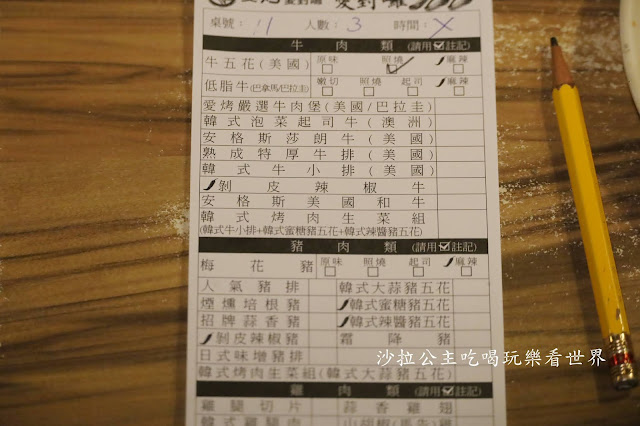 愛對
桌號: 11 人數: 3 時間: X
牛肉類 (請用☑註記)
牛五花(美國) 原味 照燒 麻辣
低脂牛(巴拿馬/巴拉圭) 嫩切 照燒 起司 麻辣
愛烤嚴選牛肉堡(美國/巴拉圭)
韓式泡菜起司牛(澳洲)
安格斯莎朗牛(美國)
熟成特厚牛排(美國)
韓式牛小排(美國)
剝皮辣椒牛
安格斯美國和牛
韓式烤肉生菜組
(韓式牛小排+韓式蜜糖豬五花+韓式辣醬豬五花)
豬肉類 (請用☑註記)
梅花豬 原味 照燒 起司 麻辣
人氣豬排 韓式大蒜豬五花
煙燻培根豬 韓式蜜糖豬五花
招牌蒜香豬 韓式辣醬豬五花
剝皮辣椒豬 霜降豬
日式味增豬排
韓式烤肉生菜組(韓式大蒜豬五花)
雞肉類 (請用☑註記)
雞腿切片 蒜香雞翅
韓式雞腿肉
沙拉公主吃喝玩樂看世界